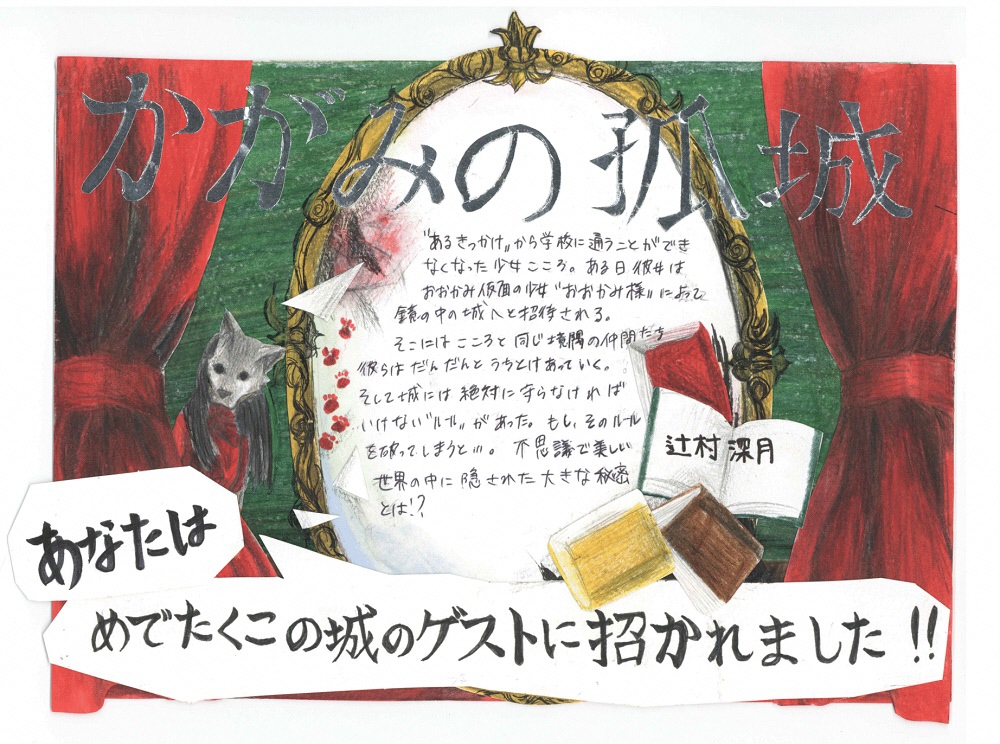 かがみの孤城
"あるきっかけ"から学校に通うことができ
なくなった少女こころ。ある日彼女は
おおかみ仮面の少女"おおかみ様"によって
鏡の中の城へと招待される。
そこにはこころと同じ境隅の仲間たち
彼らはだんだんとうちとけあっていく。
そして城には絶対に守らなければ
いけない"ルール"があった。もし、そのルール
を破ってしまうと…。不思議で美しい
世界の中に隠された大きな秘密
とは!?
辻村深月
あなたは
めでたくこの城のゲストに招かれました!!